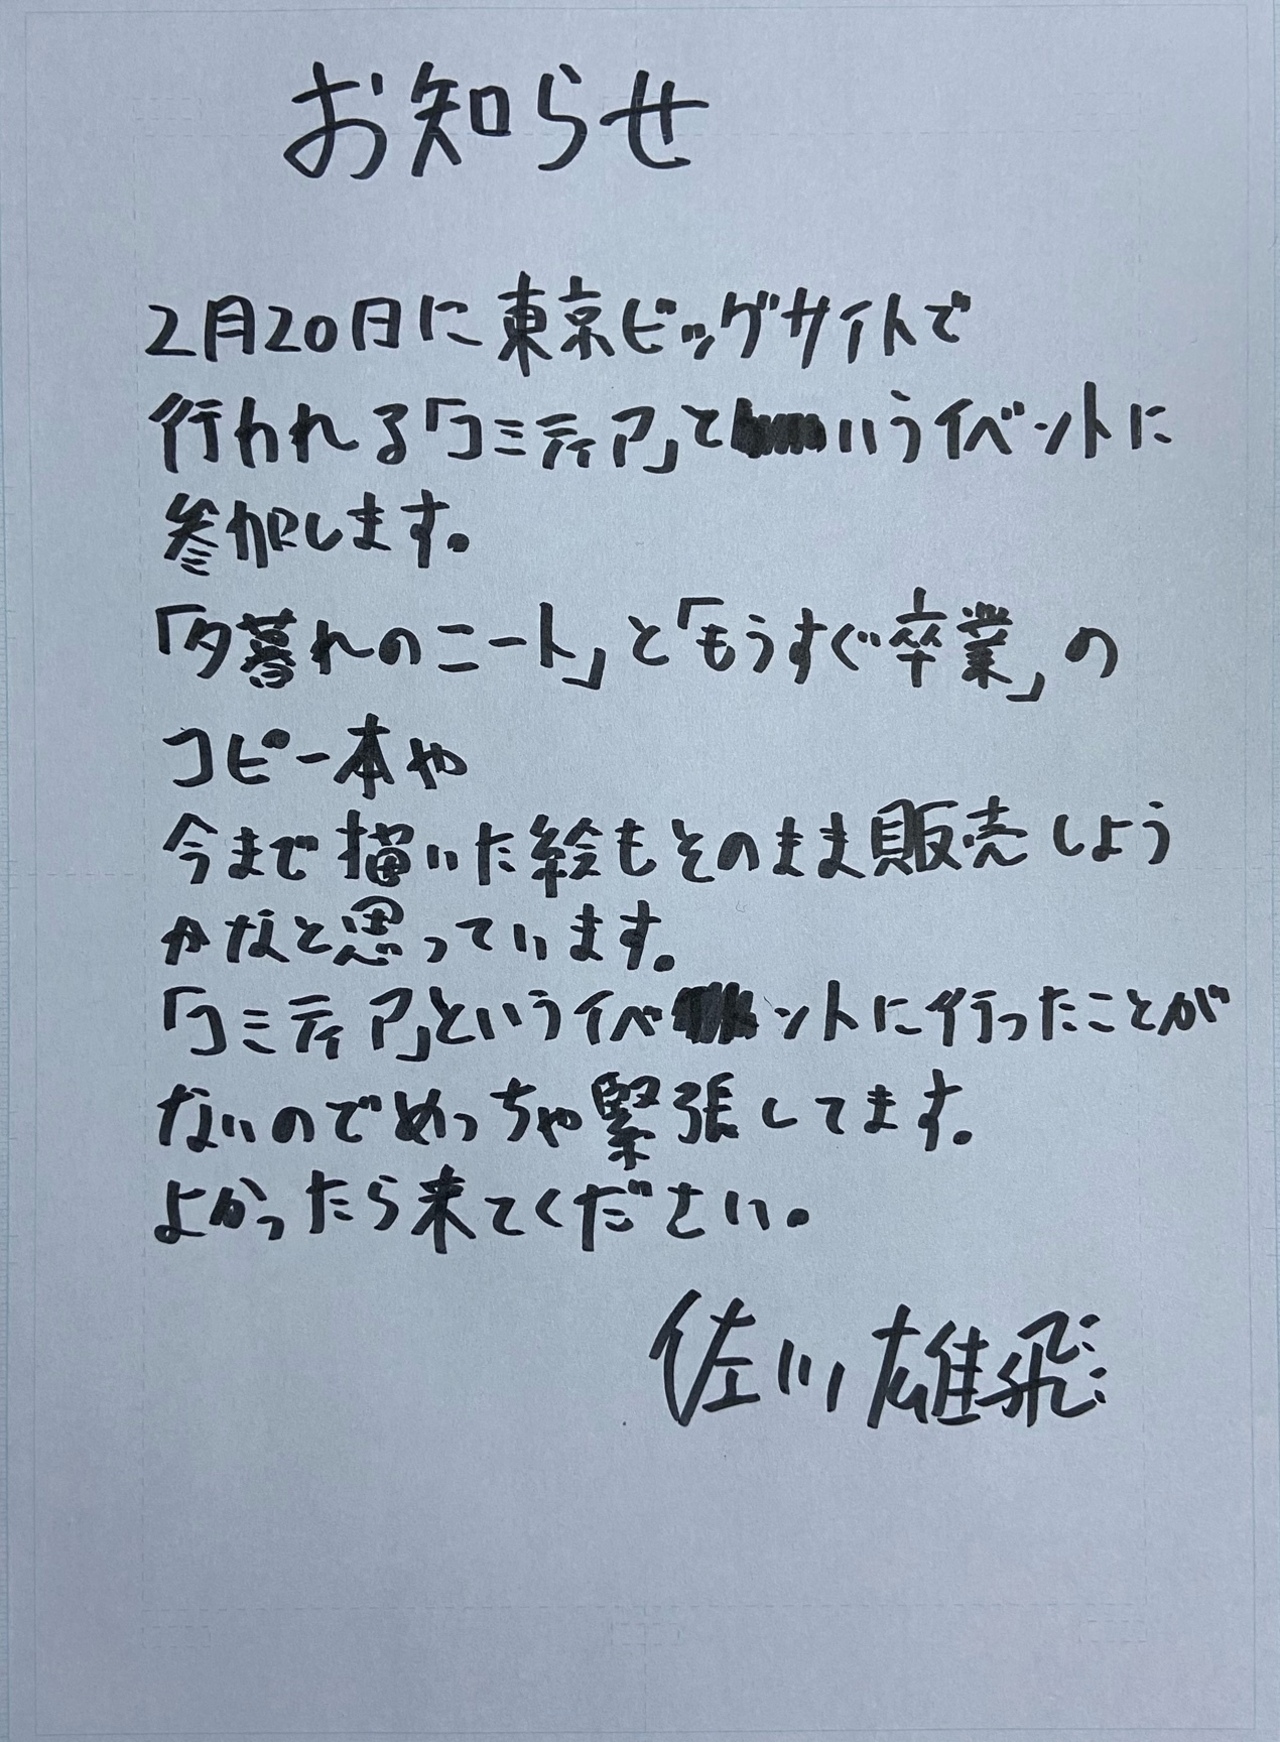 お知らせ
2月20日に東京ビッグサイトで
行われる「コミティア」というイベントに
参加します。
「夕暮れのニート」と「もうすぐ卒業」の
コピー本や
今まで描いた絵もそのまま販売しよう
かなと思っています。
「コミティア」というイベントに行ったことが
ないのでめっちゃ緊張してます。
よかったら来てください。
佐川雄飛